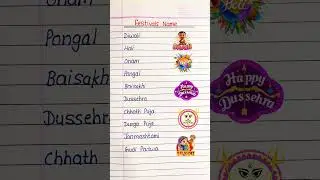 Festivals Name
Diwali
Holi
Onam
Pongal
Baisakhi
Dussehra
Chhath Puja
Durga Puja
Janmashtami
Gudi Padwa
Happy
Dussehra
Onam
Pongal
Baisakh
Dusseh
Chhath
Happy
Dussehra